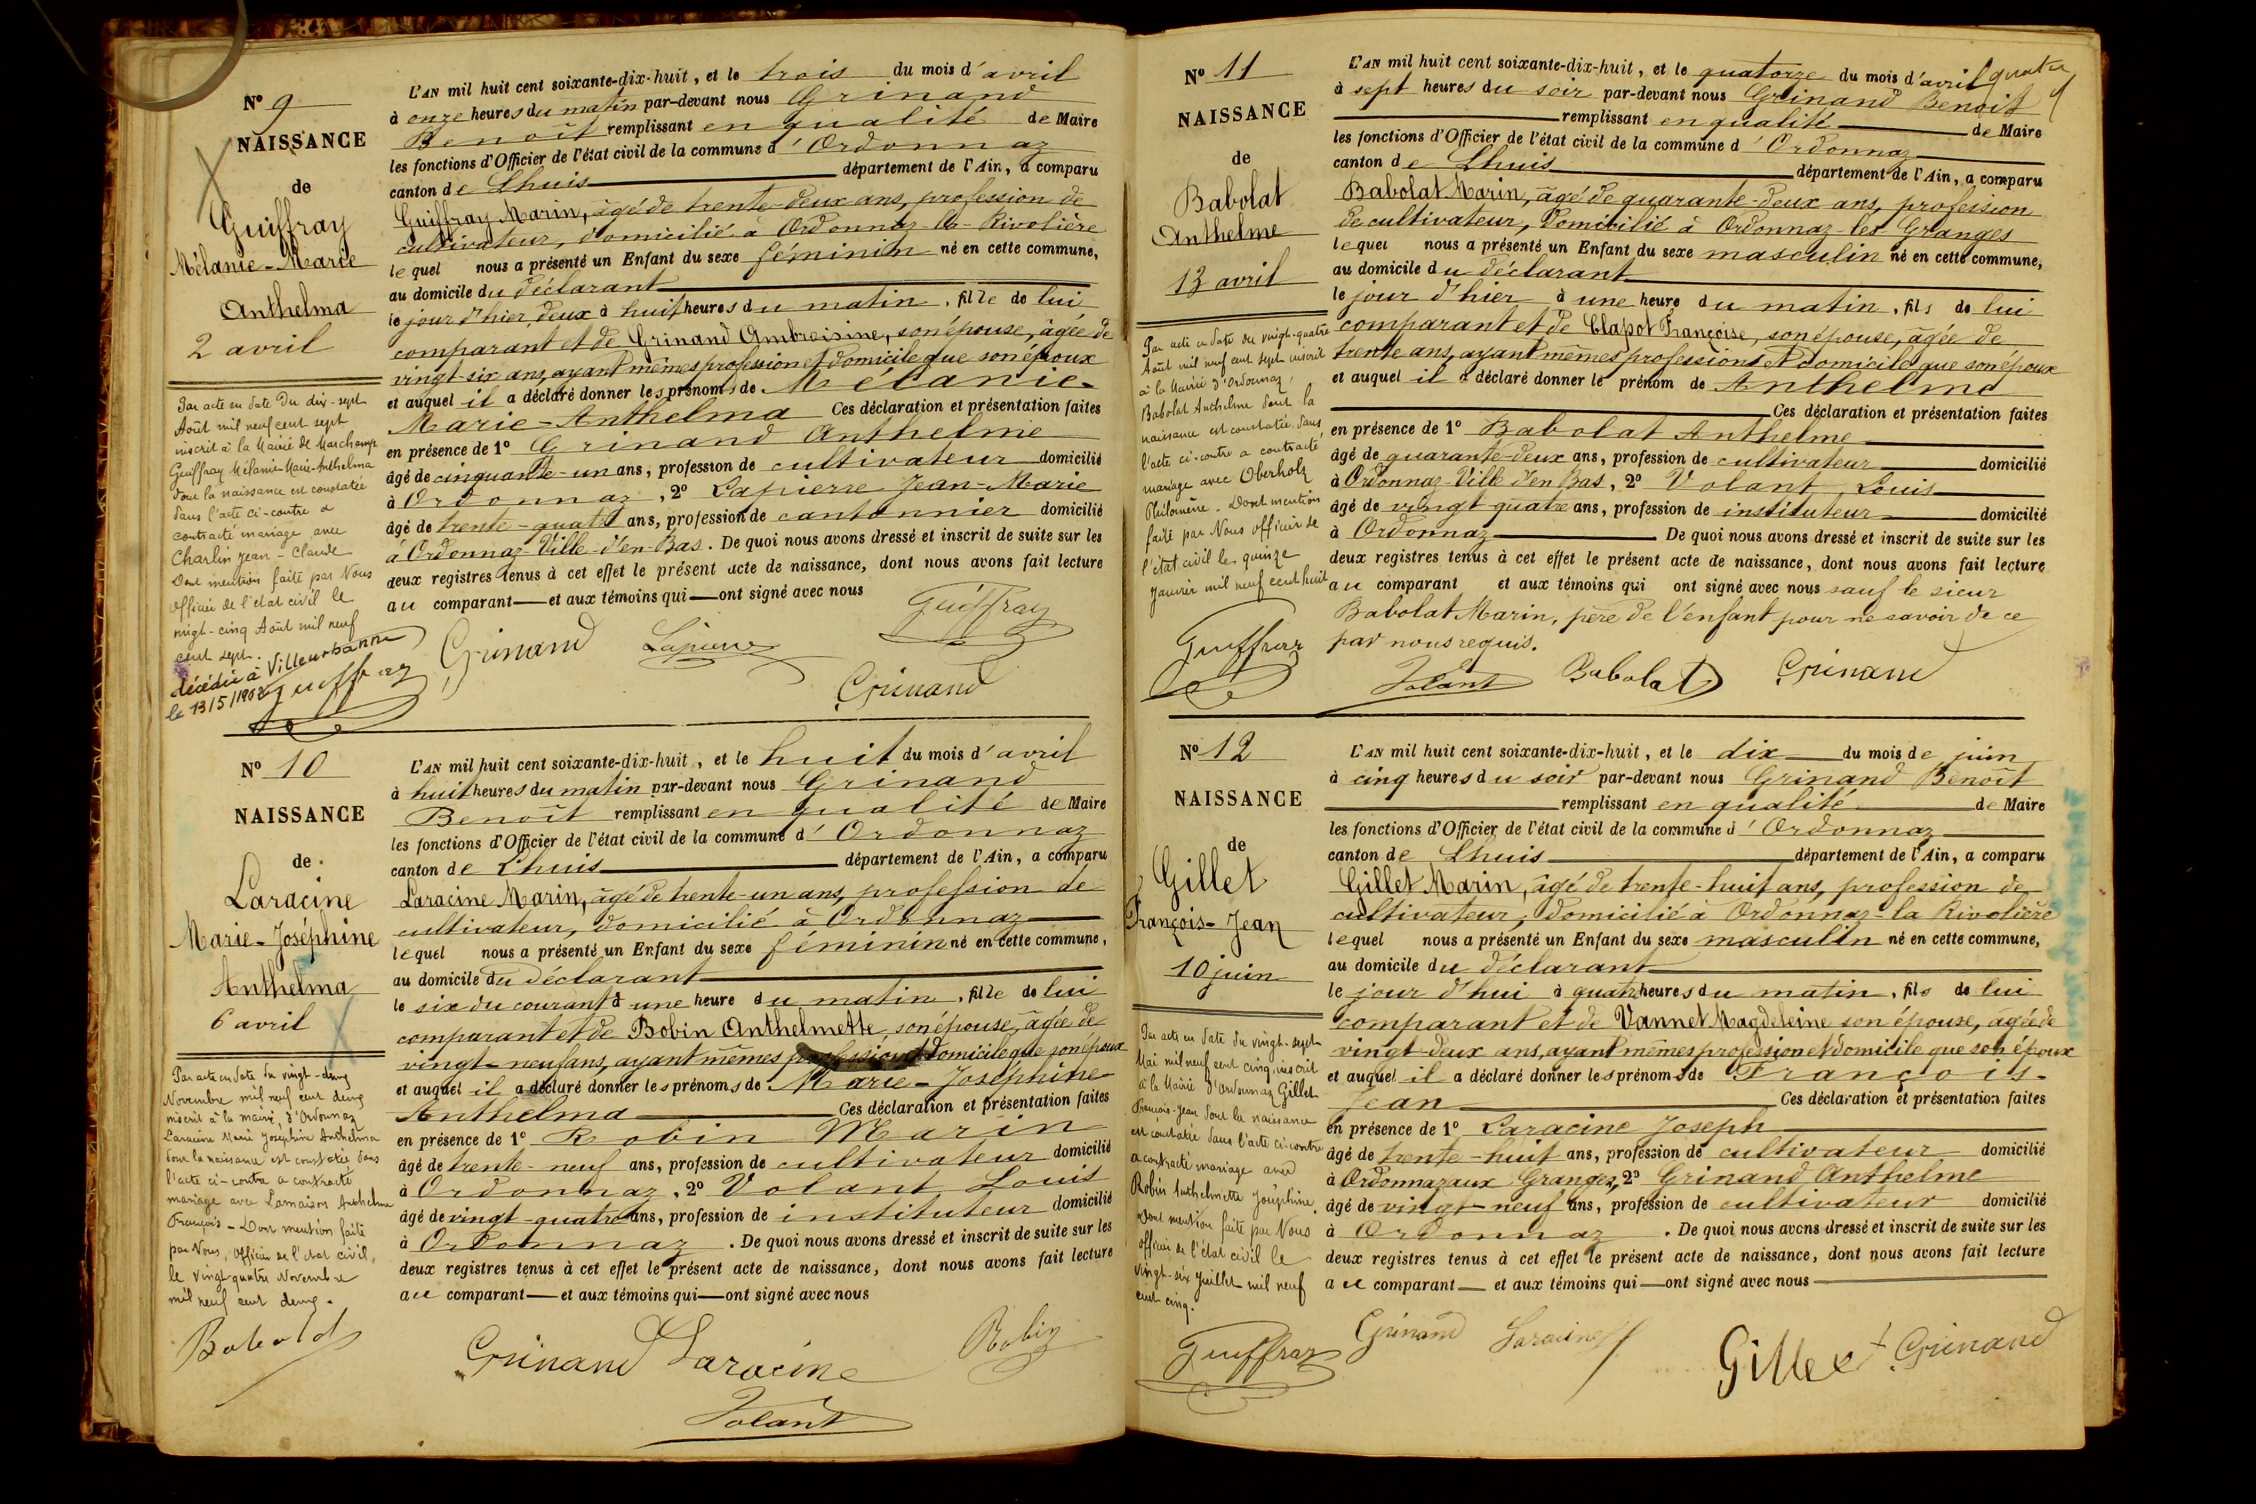 Nº 9
NAISSANCE
de
Guiffray
Mélanie-Marie
Anthelma
2 avril
Par acte en date du dix-sept
Août mil neuf cent sept
inscrit à la Mairie de Marchamp
Guiffray Mélanie Marie-Anthelma
dont la naissance est constatée
dans l'acte ci-contre a
contracté mariage avec
Charlin Jean-Claude
Dont mention faite par Nous
officier de l'état civil le
vingt-cinq Août mil neuf
cent sept.
décédée à Villeurbanne
Guiffray
L'AN mil huit cent soixante-dix-huit, et le trois du mois d'avril
à onze heures du matin par-devant nous Grinand
Benoît remplissant en qualité de Maire
les fonctions d'Officier de l'état civil de la commune d'Ordonnaz
canton de Lhuis département de l'Ain, a comparu
Guiffray Marin, âgé de trente-deux ans, profession de
cultivateur, domicilié à Ordonnaz-la-Rivolière
lequel nous a présenté un Enfant du sexe féminin né en cette commune,
au domicile du déclarant
le jour d'hier, deux à huit heures du matin, fille de lui
comparant et de Grinand Ambroisine, son épouse, âgée de
vingt-six ans, ayant mêmes profession et domicile que son époux
et auquel il a déclaré donner les prénoms de Mélanie-
Marie-Anthelma Ces déclaration et présentation faites
en présence de 1º Grinand Anthelme
âgé de cinquante-un ans, profession de cultivateur domicilié
à Ordonnaz, 2º Lapierre Jean-Marie
âgé de trente-quatre ans, profession de cantonnier domicilié
à Ordonnaz-Ville-d'en-Bas. De quoi nous avons dressé et inscrit de suite sur les
deux registres tenus à cet effet le présent acte de naissance, dont nous avons fait lecture
au comparant et aux témoins qui ont signé avec nous
Guiffray
Grinand Lapierre
Grinand
Nº 10
NAISSANCE
de
Laracine
Marie-Joséphine
Anthelma
6 avril
Par acte en date du vingt-deux
Novembre mil neuf cent deux
inscrit à la mairie d'Ordonnaz
Laracine Marie Joséphine Anthelma
dont la naissance est constatée dans
l'acte ci-contre a contracté
mariage avec Lamaison Anthelme
François - Dont mention faite
par Nous, officier de l'état civil,
le vingt quatre Novembre
mil neuf cent deux.
Babolat
L'AN mil huit cent soixante-dix-huit, et le huit du mois d'avril
à huit heures du matin par-devant nous Grinand
Benoît remplissant en qualité de Maire
les fonctions d'Officier de l'état civil de la commune d'Ordonnaz
canton de Lhuis département de l'Ain, a comparu
Laracine Marin, âgé de trente-un ans, profession de
cultivateur, domicilié à Ordonnaz
lequel nous a présenté un Enfant du sexe féminin né en cette commune,
au domicile du déclarant
le six du courant à une heure du matin, fille de lui
comparant et de Bobin Anthelmette, son épouse, âgée de
vingt-neuf ans, ayant mêmes profession et domicile que son époux
et auquel il a déclaré donner les prénoms de Marie-Joséphine
Anthelma Ces déclaration et présentation faites
en présence de 1º Robin Marin
âgé de trente-neuf ans, profession de cultivateur domicilié
à Ordonnaz, 2º Volant Louis
âgé de vingt-quatre ans, profession de instituteur domicilié
à Ordonnaz. De quoi nous avons dressé et inscrit de suite sur les
deux registres tenus à cet effet le présent acte de naissance, dont nous avons fait lecture
au comparant et aux témoins qui ont signé avec nous
Grinand Laracine Robin
Volant
Nº 11
NAISSANCE
de
Babolat
Anthelme
13 avril
Par acte en date du vingt-quatre
Août mil neuf cent sept inscrit
à la Mairie d'Ordonnaz,
Babolat Anthelme dont la
naissance est constatée dans
l'acte ci-contre a contracté
mariage avec Oberholz
Philomène. Dont mention
faite par Nous officier de
l'état civil le quinze
Janvier mil neuf cent huit
Guiffray
L'AN mil huit cent soixante-dix-huit, et le quatorze du mois d'avril quatre
à sept heures du soir par-devant nous Grinand Benoît
remplissant en qualité de Maire
les fonctions d'Officier de l'état civil de la commune d'Ordonnaz
canton de Lhuis département de l'Ain, a comparu
Babolat Marin, âgé de quarante-deux ans, profession
de cultivateur, domicilié à Ordonnaz-les-Granges
lequel nous a présenté un Enfant du sexe masculin né en cette commune,
au domicile du déclarant
le jour d'hier à une heure du matin, fils de lui
comparant et de Clapot Françoise, son épouse, âgée de
trente ans, ayant mêmes professions et domicile que son époux
et auquel il a déclaré donner le prénom de Anthelme
Ces déclaration et présentation faites
en présence de 1º Babolat Anthelme
âgé de quarante-deux ans, profession de cultivateur domicilié
à Ordonnaz-Ville d'en Bas, 2º Volant Louis
âgé de vingt quatre ans, profession de instituteur domicilié
à Ordonnaz De quoi nous avons dressé et inscrit de suite sur les
deux registres tenus à cet effet le présent acte de naissance, dont nous avons fait lecture
au comparant et aux témoins qui ont signé avec nous sauf le sieur
Babolat Marin, père de l'enfant pour ne savoir de ce
par nous requis.
Volant Babolat Grinand
Nº 12
NAISSANCE
de
Gillet
François-Jean
10 juin
Par acte en date du vingt-sept
Mai mil neuf cent cinq inscrit
à la Mairie d'Ordonnaz Gillet
François-Jean dont la naissance
est constatée dans l'acte ci-contre
a contracté mariage avec
Robin Anthelmette Joséphine.
Dont mention faite par Nous
officier de l'état civil le
vingt-six Juillet mil neuf
cent cinq.
Guiffray
L'AN mil huit cent soixante-dix-huit, et le dix du mois de juin
à cinq heures du soir par-devant nous Grinand Benoît
remplissant en qualité de Maire
les fonctions d'Officier de l'état civil de la commune d'Ordonnaz
canton de Lhuis département de l'Ain, a comparu
Gillet Marin, âgé de trente-huit ans, profession de
cultivateur, domicilié à Ordonnaz-la Rivolière
lequel nous a présenté un Enfant du sexe masculin né en cette commune,
au domicile du déclarant
le jour d'hui à quatre heures du matin, fils de lui
comparant et de Vannet Magdeleine son épouse, âgée de
vingt-deux ans, ayant mêmes profession et domicile que son époux
et auquel il a déclaré donner les prénoms de François-
Jean Ces déclaration et présentation faites
en présence de 1º Laracine Joseph
âgé de trente-huit ans, profession de cultivateur domicilié
à Ordonnaz aux Granges, 2º Grinand Anthelme
âgé de vingt-neuf ans, profession de cultivateur domicilié
à Ordonnaz. De quoi nous avons dressé et inscrit de suite sur les
deux registres tenus à cet effet le présent acte de naissance, dont nous avons fait lecture
au comparant et aux témoins qui ont signé avec nous
Grinand Laracine Gillet Grinand